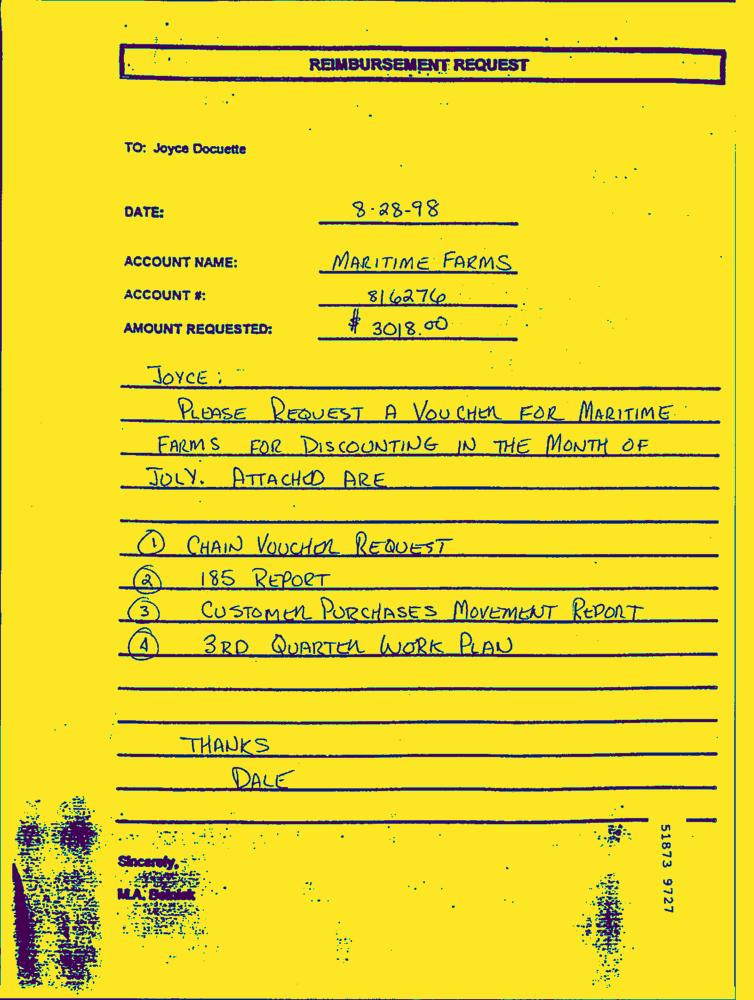 REIMBURSEMENT REQUEST
TO: Joyce Docuette
DATE: 8-28-98
ACCOUNT NAME: MARITIME FARMS
ACCOUNT #: 816276
AMOUNT REQUESTED: $ 3018.00
JOYCE:
PLEASE REQUEST A VOUCHER FOR MARITIME
FARMS FOR DISCOUNTING IN THE MONTH OF
JULY. ATTACHED ARE
1 CHAIN VOUCHER REQUEST
2 185 REPORT
3 CUSTOMER PURCHASES MOVEMENT REPORT
4 3RD QUARTER WORK PLAN
THANKS
DALE
51873 9727
Sincerely,
M.A.